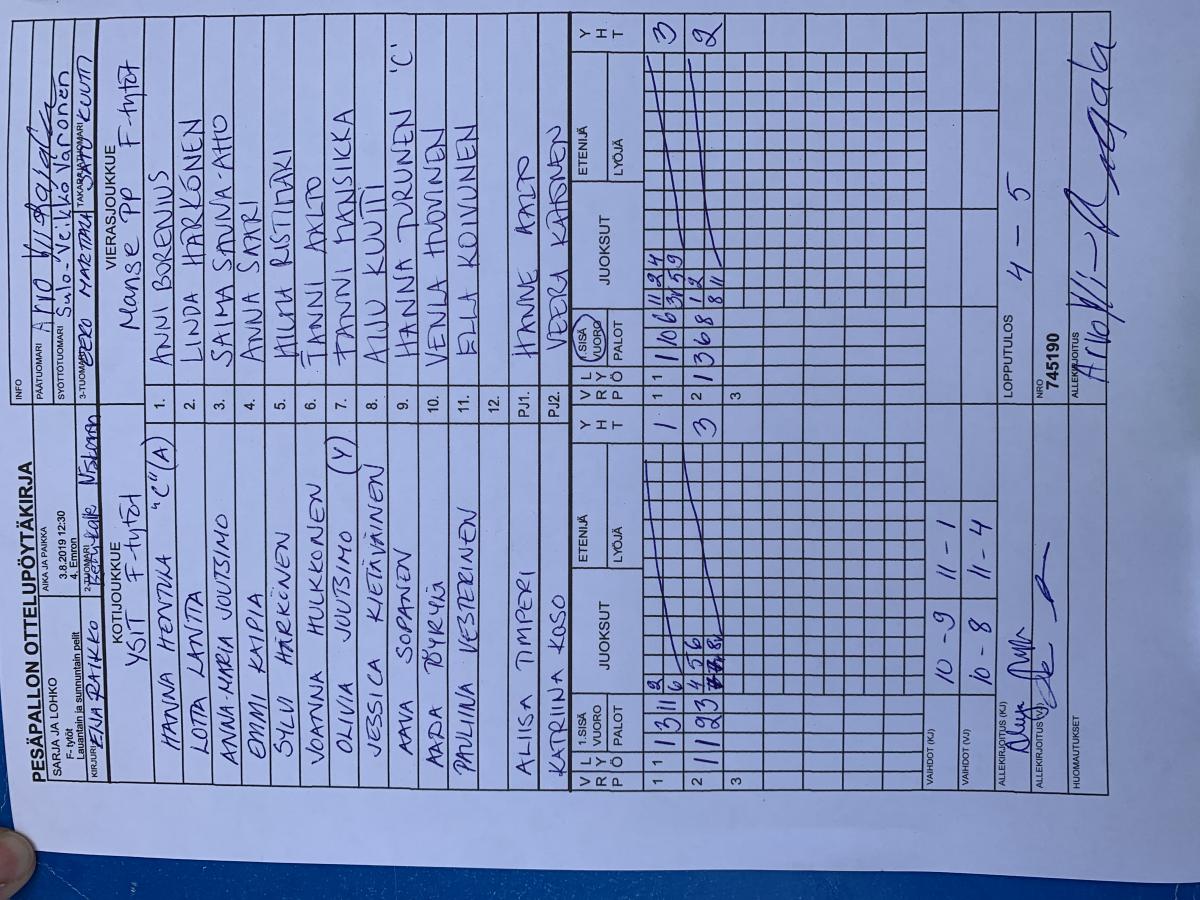 PESÄPALLON OTTELUPÖYTÄKIRJA
SARJA JA LOHKO
F- tytöt
Lauantain ja sunnuntain pelit
AIKA JA PAIKKA
3.8.2019 12:30
4. Emron
INFO
PÄÄTUOMARI
SYÖTTÖTUOMARI Sulo-Veikko Varonen
KIRJURI
2-TUOMARI
3-TUOMARI
TAKARAJATUOMARI
KOTIJOUKKUE
YSIT F-tytöt
VIERASJOUKKUE
Manse PP F-tytöt
HANNA HENTULA "C" (A) 1. ANNI BORENIUS
LOTTA LANTTA 2. LINDA HÄRKÖNEN
ANNA-MARIA JOUTSIMO 3. SAIMA SAUNA-AHO
EMMI KAIPIA 4. ANNA SAARI
SYLVI HÄRKÖNEN 5. HILMA RISTIMÄKI
JOANNA HULKKONEN 6. TANNI AALTO
OLIVIA JOUTSIMO (Y) 7. FANNI HANSIKKA
JESSICA KIETÄVÄINEN 8. AIJU KUUTTI
AAVA SOPANEN 9. HANNA TURUNEN 'C'
AADA TÖYRYLÄ 10. VENLA HUOVINEN
PAULIINA VESTERINEN 11. ELLA KOIVUNEN
12.
ALIISA TIMPERI PJ1. HANNE AALTO
KATRIINA KOSO PJ2.
V R P L Y Ö 1.SISÄ VUORO PALOT JUOKSUT ETENIJÄ LYÖJÄ Y H T
V R P L Y Ö 1.SISÄ VUORO PALOT JUOKSUT ETENIJÄ LYÖJÄ Y H T
1 1 1 3 11 2 6 1
1 1 1 10 6 3
2 1 1 2 3 4 5 6 3
2 1 3 6 8 1 2 8 11 2
3
3
VAIHDOT (KJ) 10 - 9 11 - 1
VAIHDOT (VJ) 10 - 8 11 - 4
ALLEKIRJOITUS (KJ)
LOPPUTULOS 4 - 5
ALLEKIRJOITUS (VJ)
NRO
745190
HUOMAUTUKSET
ALLEKIRJOITUS